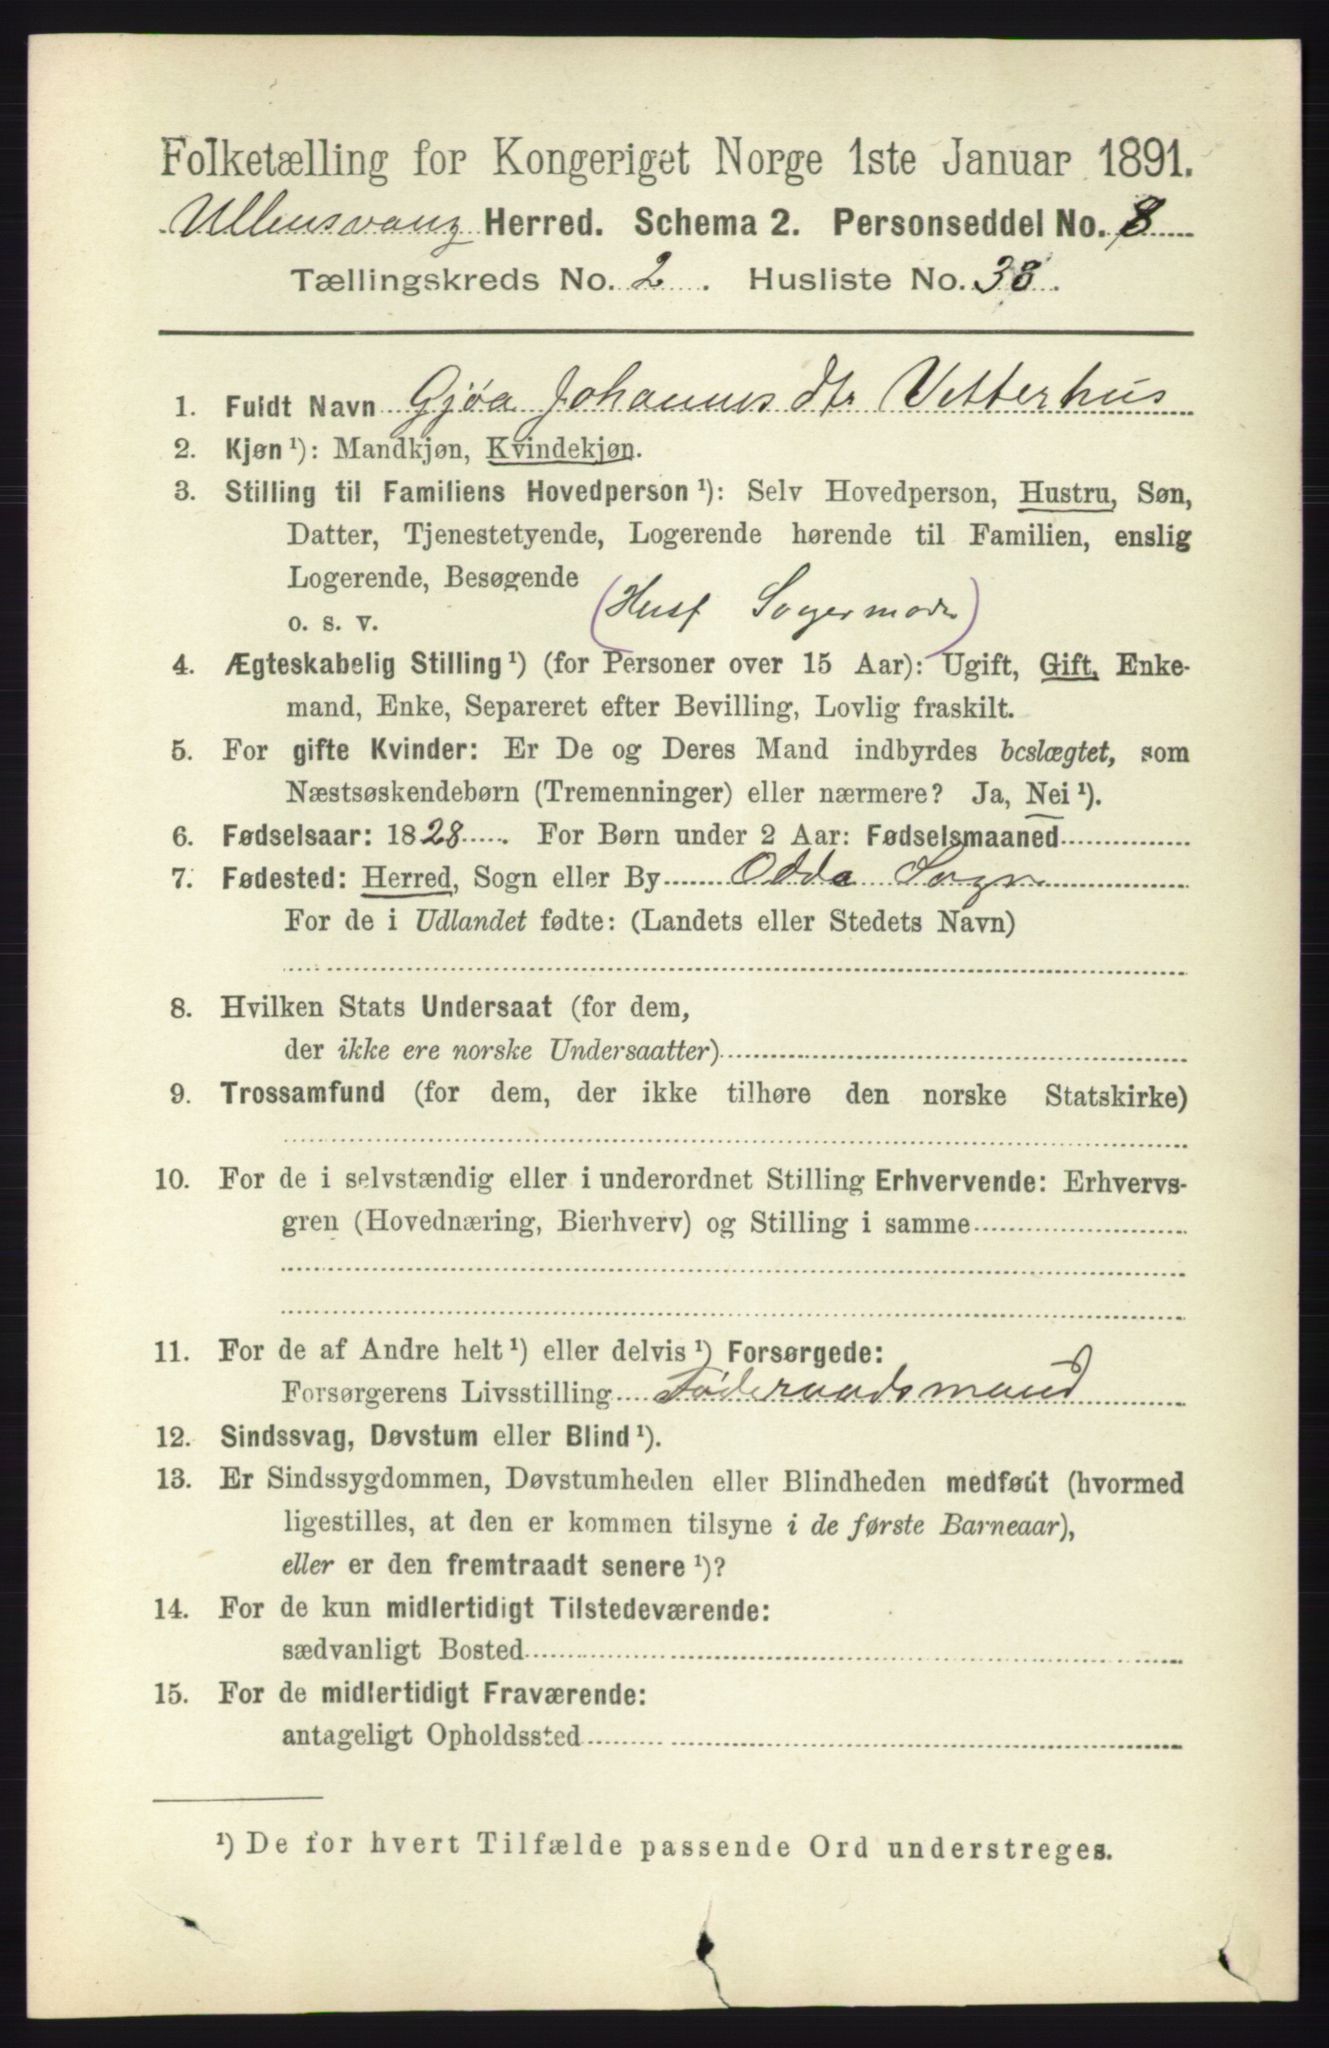 Folketælling for Kongeriget Norge 1ste Januar 1891.
Ullensvang Herred. Schema 2. Personseddel No. 8
Tællingskreds No. 2. Husliste No. 38.
1. Fuldt Navn Gjøa Johannesdtr Vetterhus
2. Kjøn ¹): Mandkjøn, Kvindekjøn.
3. Stilling til Familiens Hovedperson ¹): Selv Hovedperson, Hustru, Søn,
Datter, Tjenestetyende, Logerende hørende til Familien, enslig
Logerende, Besøgende
o. s. v. (Husf Sogermoder)
4. Ægteskabelig Stilling ¹) (for Personer over 15 Aar): Ugift, Gift, Enke-
mand, Enke, Separeret efter Bevilling, Lovlig fraskilt.
5. For gifte Kvinder: Er De og Deres Mand indbyrdes beslægtet, som
Næstsøskendebørn (Tremenninger) eller nærmere? Ja, Nei ¹).
6. Fødselsaar: 1828. For Børn under 2 Aar: Fødselsmaaned
7. Fødested: Herred, Sogn eller By Odda Sogn
For de i Udlandet fødte: (Landets eller Stedets Navn)
8. Hvilken Stats Undersaat (for dem,
der ikke ere norske Undersaatter)
9. Trossamfund (for dem, der ikke tilhøre den norske Statskirke)
10. For de i selvstændig eller i underordnet Stilling Erhvervende: Erhvervs-
gren (Hovednæring, Bierhverv) og Stilling i samme
11. For de af Andre helt ¹) eller delvis ¹) Forsørgede:
Forsørgerens Livsstilling Føderaadsmand
12. Sindssvag, Døvstum eller Blind ¹).
13. Er Sindssygdommen, Døvstumheden eller Blindheden medfødt (hvormed
ligestilles, at den er kommen tilsyne i de første Barneaar),
eller er den fremtraadt senere ¹)?
14. For de kun midlertidigt Tilstedeværende:
sædvanligt Bosted
15. For de midlertidigt Fraværende:
antageligt Opholdssted
¹) De for hvert Tilfælde passende Ord understreges.